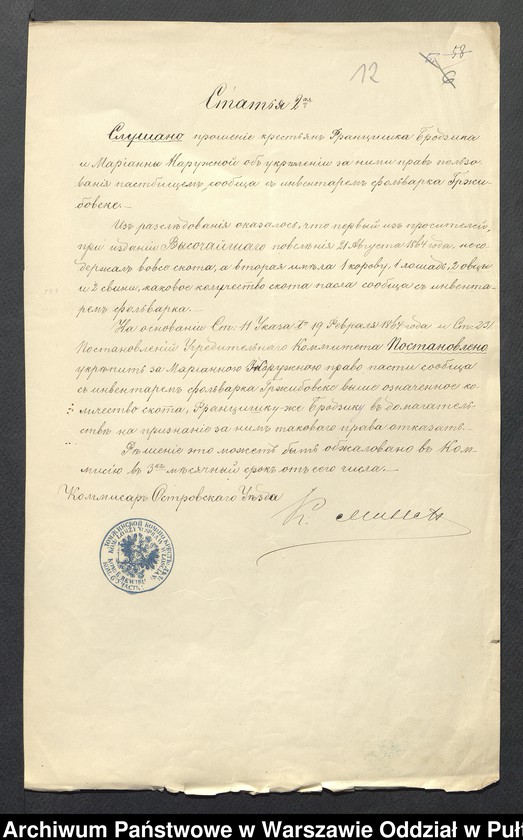 58
12
6
Статья 2ая
Слушано прошеніе крестьян Францишка Бродзика
и Маріанны Наружной объ укрѣпленіи за ними правъ пользо-
ванія пастбищемъ, сообща съ инвентаремъ фольварка Гржи-
бовске.—
Изъ разслѣдованія оказалось, что первый изъ просителей,
при изданіи Высочайшаго повелѣнія 21 Августа 1864 года, несо-
держалъ вовсе скота, а вторая имѣла 1 корову, 1 лошадь, 2 овцы
и 2 свиньи, каковое количество скота пасла сообща съ инвента-
ремъ фольварка.—
На основаніи Ст. 11 Указа 19 Февраля 1864 года и Ст. 231
Постановленій Учредительнаго Коммитета Постановлено
укрѣпить за Маріанною Наружною право пасти сообща
съ инвентаремъ фольварка Гржибовске выше означенное ко-
личество скота, Францишку-же Бродзику въ домагатель-
ствѣ на признаніе за нимъ таковаго права отказать.
Рѣшеніе это можетъ быть обжаловано въ Ком-
мисію въ 3хъ мѣсячный срокъ отъ сего числа.—
Коммисаръ Островскаго Уѣзда
Archiwum Państwowe w Warszawie Oddział w Puł